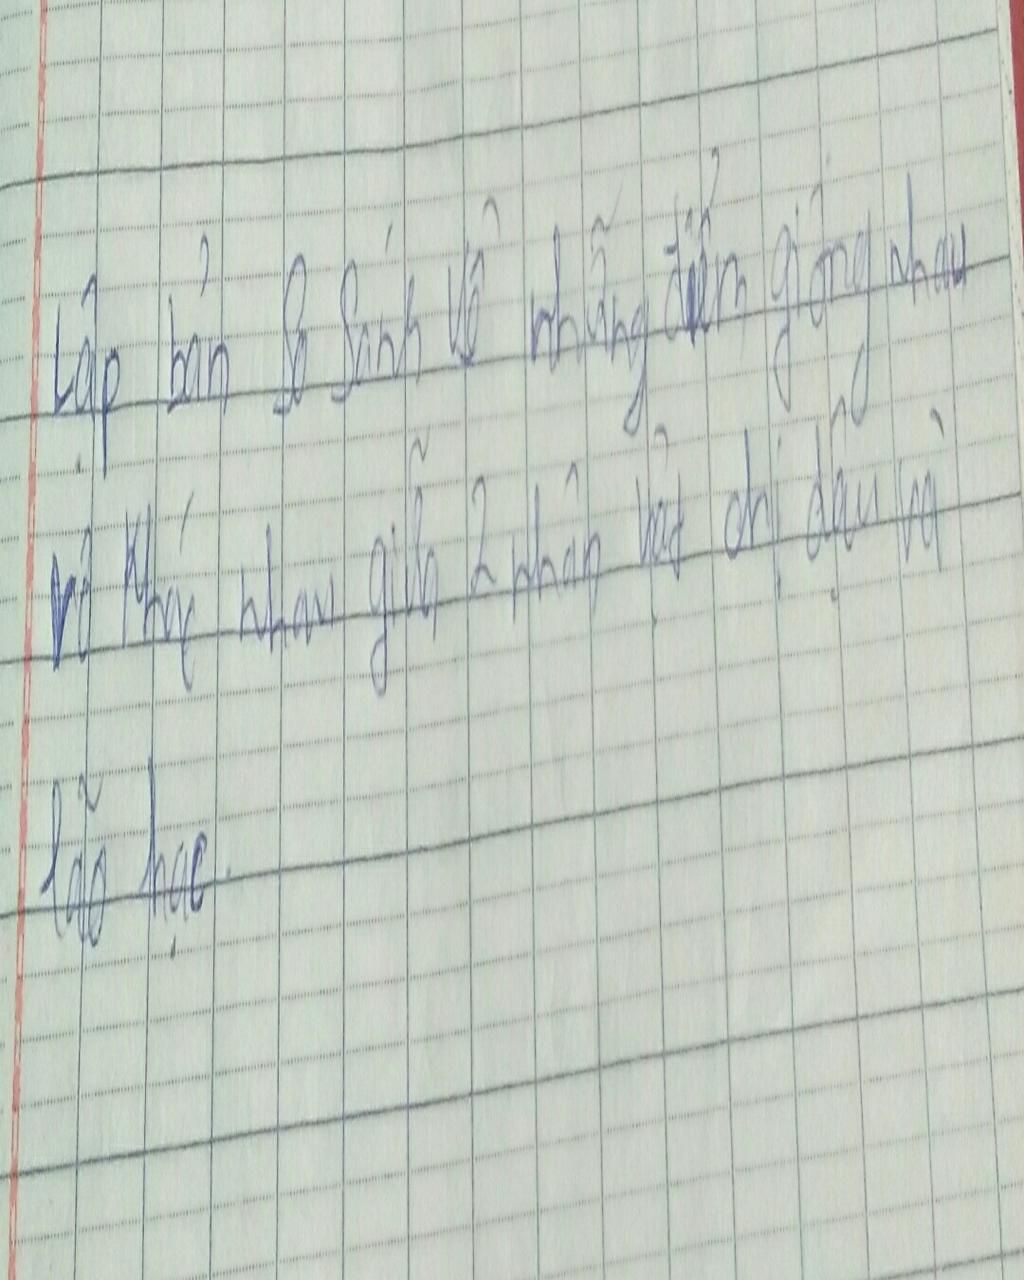 Lập bản so sánh về những điểm giống nhau
về khác nhau giữa 2 nhân vật chị dậu và
lão hạc.